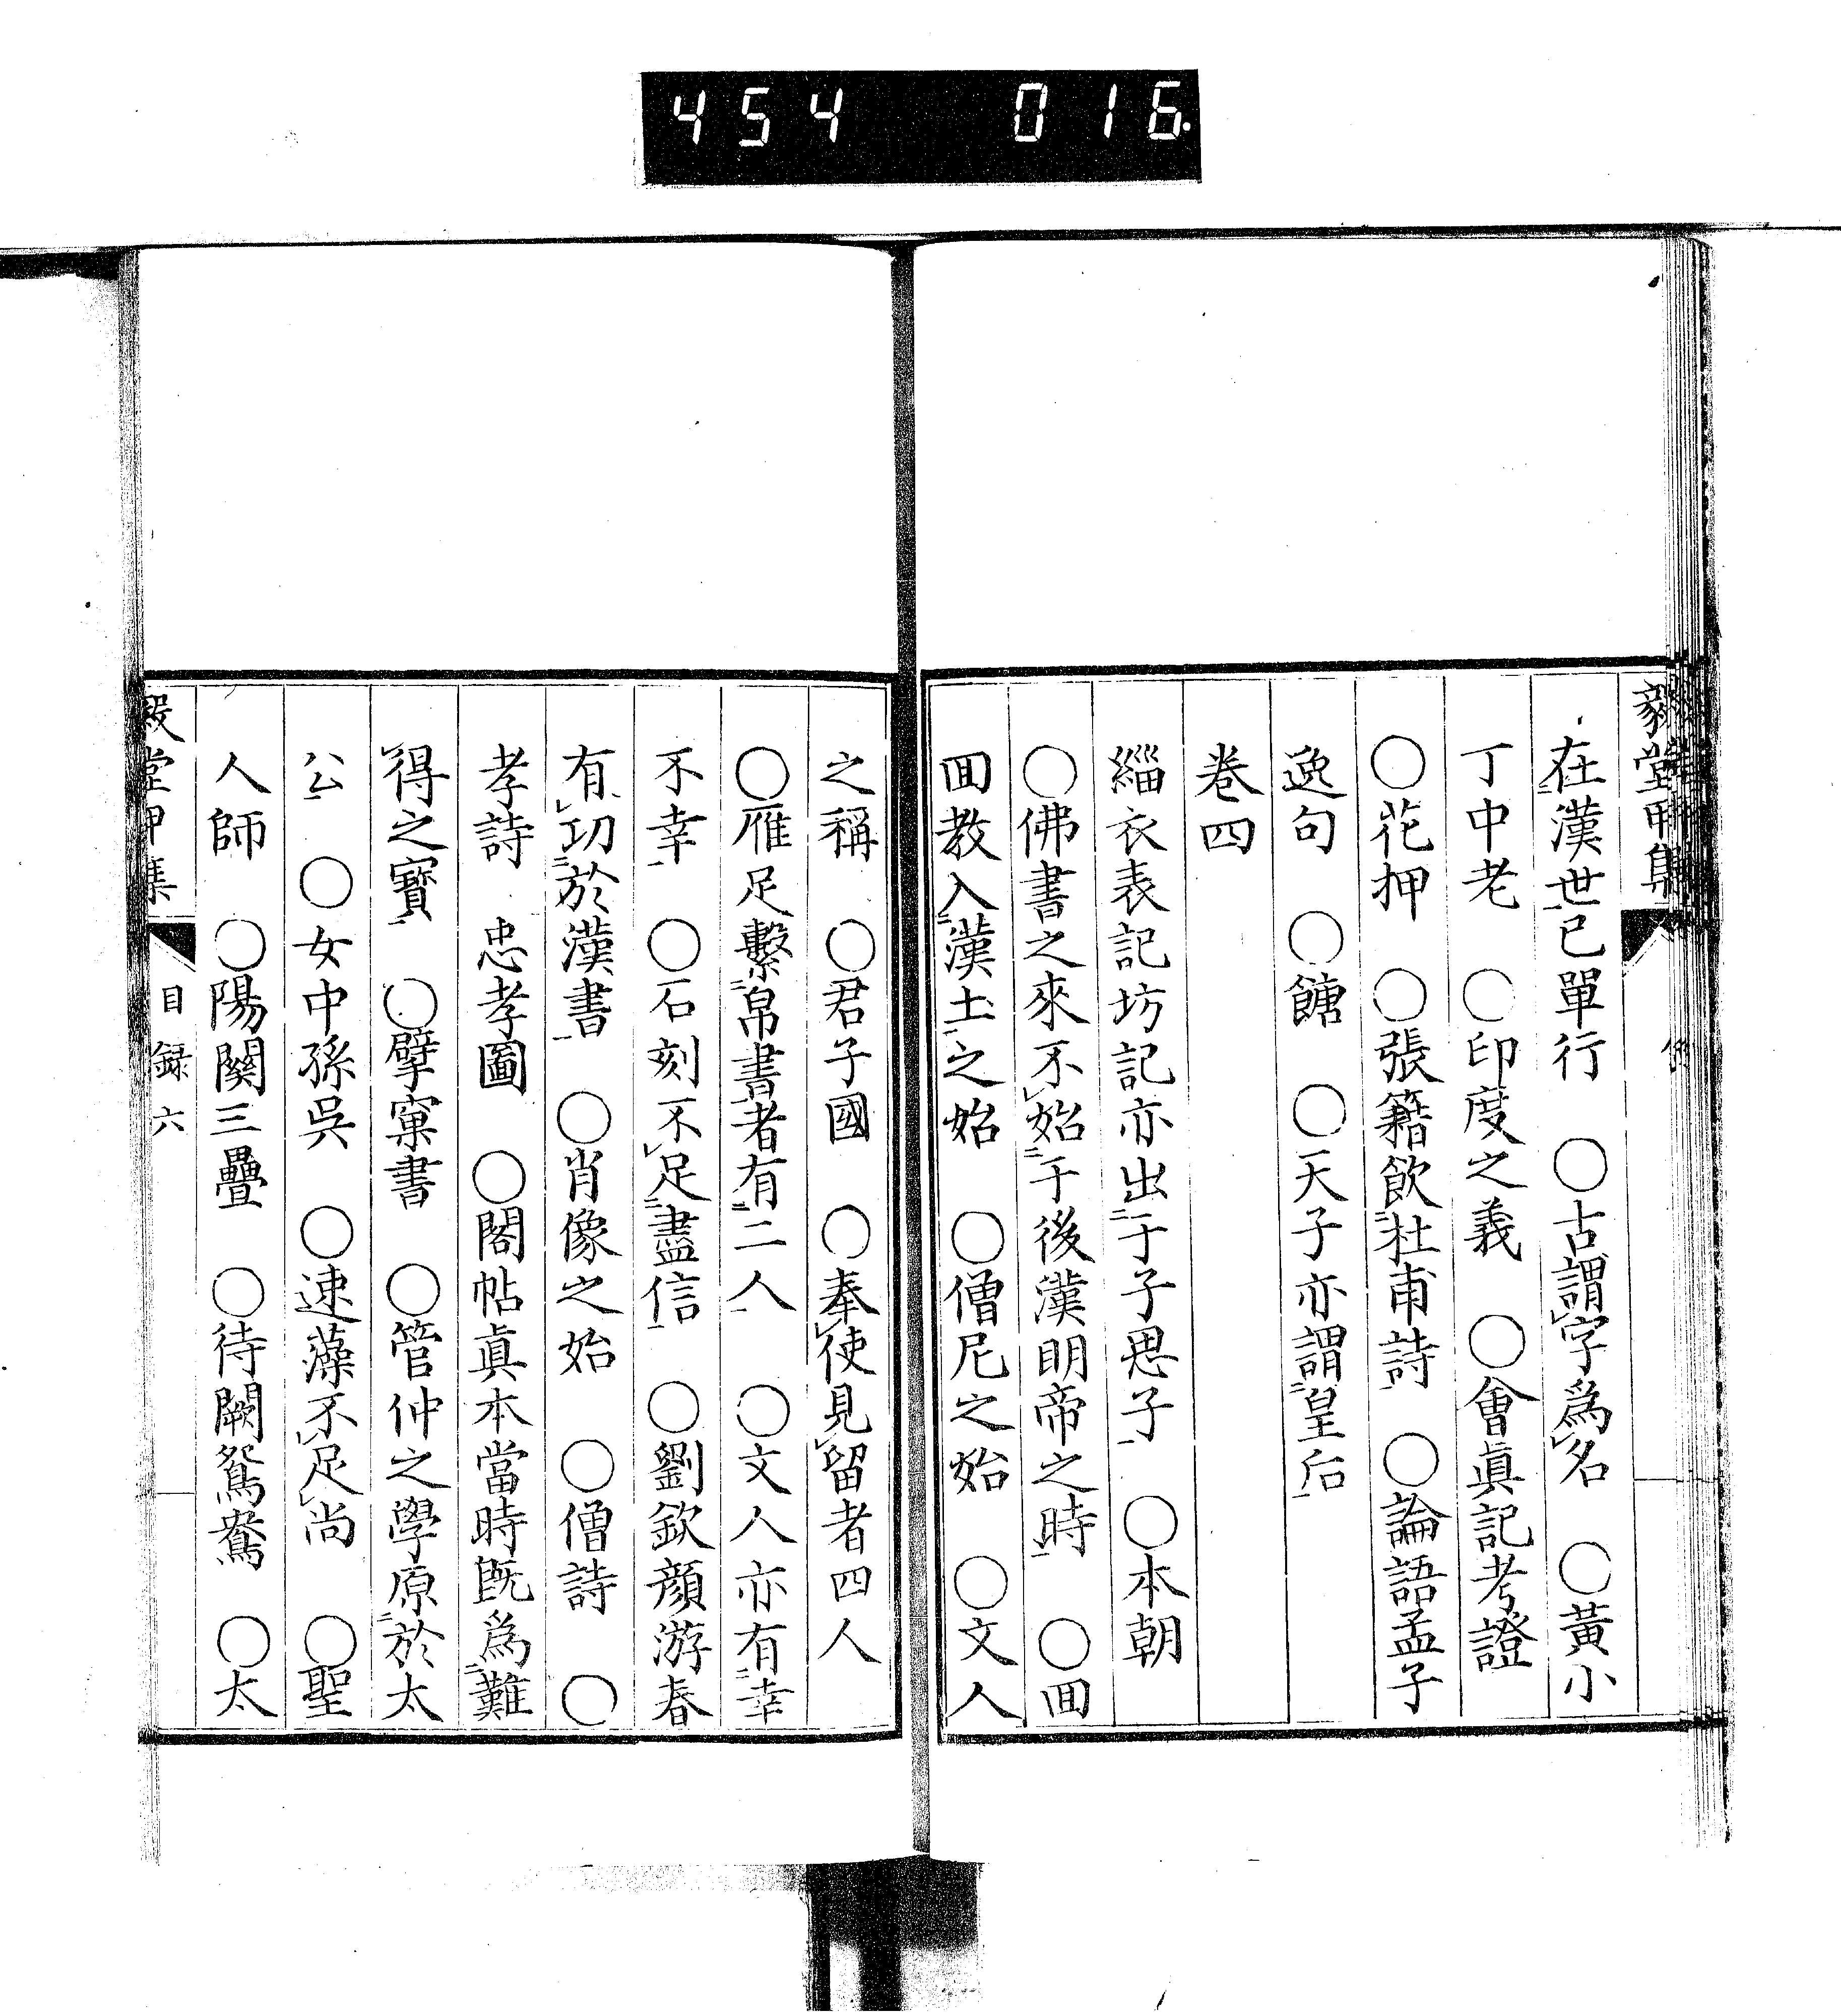 454 016
毅堂甲集
在漢世已單行 ○古謂字爲名 ○黃小
丁中老 ○印度之義 ○會眞記考證
○花押 ○張籍飲杜甫詩 ○論語孟子
逸句 ○餹 ○天子亦謂皇后
卷四
緇衣表記坊記亦出于子思子 ○本朝
○佛書之來不始于後漢明帝之時 ○回
回教入漢土之始 ○僧尼之始 ○文人
之稱 ○君子國 ○奉使見留者四人
○雁足繫帛書者有二人 ○文人亦有幸
不幸 ○石刻不足盡信 ○劉欽顏游春
有功於漢書 ○肖像之始 ○僧詩 ○
孝詩 忠孝圖 ○閣帖眞本當時既爲難
得之寶 ○擘窠書 ○管仲之學原於太
公 ○女中孫吳 ○速藻不足尚 ○聖
人師 ○陽關三疊 ○待闕鴛鴦 ○太
毅堂甲集 目録 六